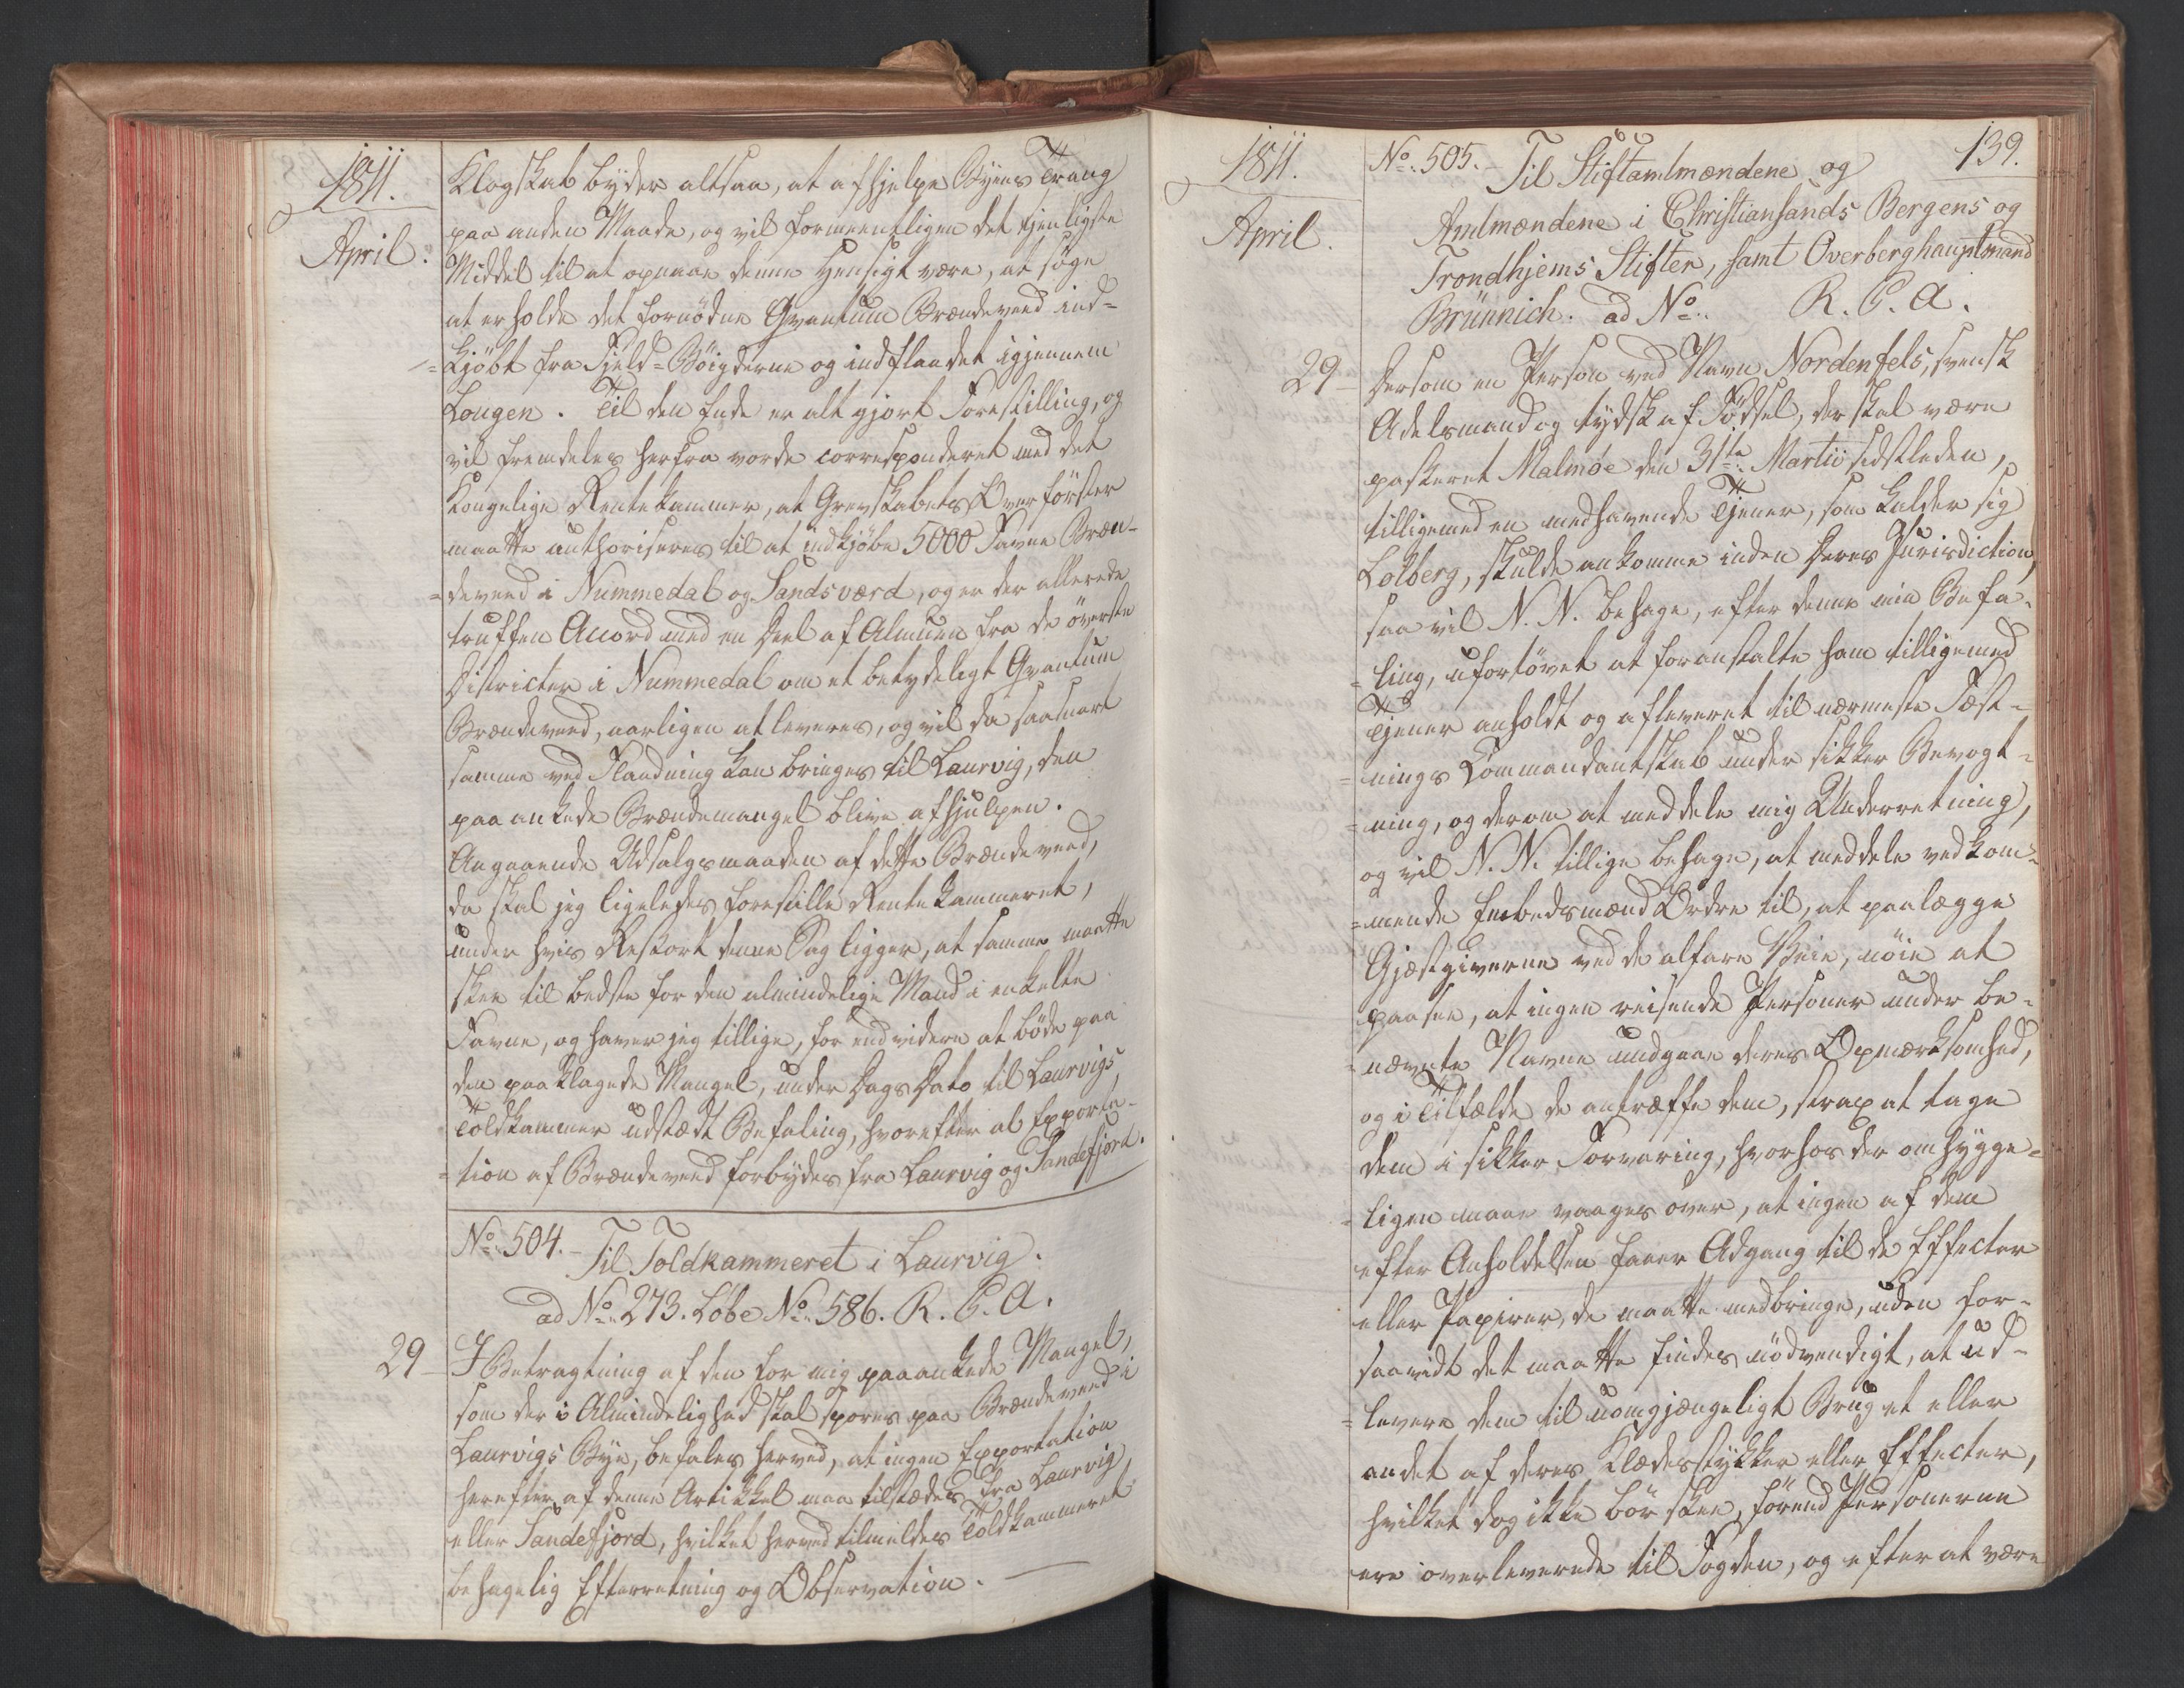 1811.
April.
Klogskab byder altsaa, at afhjelpe Byens Trang
paa anden Maade, og vil formeentligen det tjenligste
Middel til at opnaae denne Hensigt være, at søge
at erholde det fornødne Qvantum Brændeveed ind-
=kjöbt fra Fjeld-Böigderne og indflaadet igjennem
Lougen. Til den Ende er alt gjort Forestilling, og
vil fremdeles herfra vorde corresponderet med det
Kongelige Rentekammer, at Grevskabets Overförster
maatte authoriseres til at indkjöbe 5000 Favne Bræn-
=deveed i Nummedal og Sandsværd, og er der allerede
truffen Accord med en Deel af Almuen fra de överste
Districter i Nummedal om et betydeligt Qvantum
Brændeveed, aarligen at leveres, og vil da saasnart
samme ved Flaadning kan bringes til Laurvig, den
paaankede Brændemangel blive afhjulpen.
Angaaende Udsalgsmaaden af dette Brændeveed,
da skal jeg ligeledes forestille Rentekammeret,
under hvis Ressort denne Sag ligger, at samme maatte
skee til bedste for den almindelige Mand i enkelte
Favne, og haver jeg tillige, for end videre at böde paa
den paaklagede Mangel, under Dags Dato til Laurvigs
Toldkammer udstædt Befaling, hvorefter al Exporta-
=tion af Brændeveed forbydes fra Laurvig og Sandefjord.
No. 504. Til Toldkammeret i Laurvig.
ad No. 273. Löbe No. 586. R. C. A.
29 I Betragtning af den for mig paaankede Mangel,
som der i Almindelighed skal spores paa Brændeveed i
Laurvigs Bye, befales herved, at ingen Exportation
herefter af denne Artikkel maa tilstædes fra Laurvig
eller Sandefjord, hvilket herved tilmeldes Toldkammeret
behagelig Efterretning og Observation.
1811.
April.
139.
No. 505. Til Stiftamtmændene og
Amtmændene i Christiansands Bergens og
Trondhjems Stifter, samt Overberghauptmand
Brünnich. ad No. R. C. A.
29 Dersom en Person ved Navn Nordenfels, svensk
Adelsmand og tydsk af Födsel, der skal være
passeret Malmøe den 31te Martii sidstleden,
tilligemed en medhavende Tjener, som kalder sig
Lolberg, skulde ankomme inden Deres Jurisdiction,
saa vil N. N. behage, efter denne min Befa-
=ling, ufortövet at foranstalte ham tilligemed
Tjener anholdt og afleveret til nærmeste Fæst-
=nings Commandantskab under sikker Bevogt-
=ning, og derom at meddele mig Underretning,
og vil N. N. tillige behage, at meddele vedkom-
=mende Embedsmænd Ordre til, at paalægge
Gjæstgiverne ved de alfare Veie, nöie at
paasee, at ingen reisende Personer under be-
=nævnte Navne undgaae deres Opmærksomhed,
og i Tilfælde de antræffe dem, strax at tage
dem i sikker Forvaring, hvorhos der omhygge-
=ligen maae vaages over, at ingen af dem
efter Anholdelsen faaer Adgang til de Effecter
eller Papirer, de maatte medbringe, uden for-
saavidt det maatte findes nödvendigt, at ud-
=levere dem til uomgjængeligt Brug et eller
andet af deres Klædesstykker eller Effecter,
hvilket dog ikke bör skee, förend Personerne
ere overleverede til Fogden, og efter at være